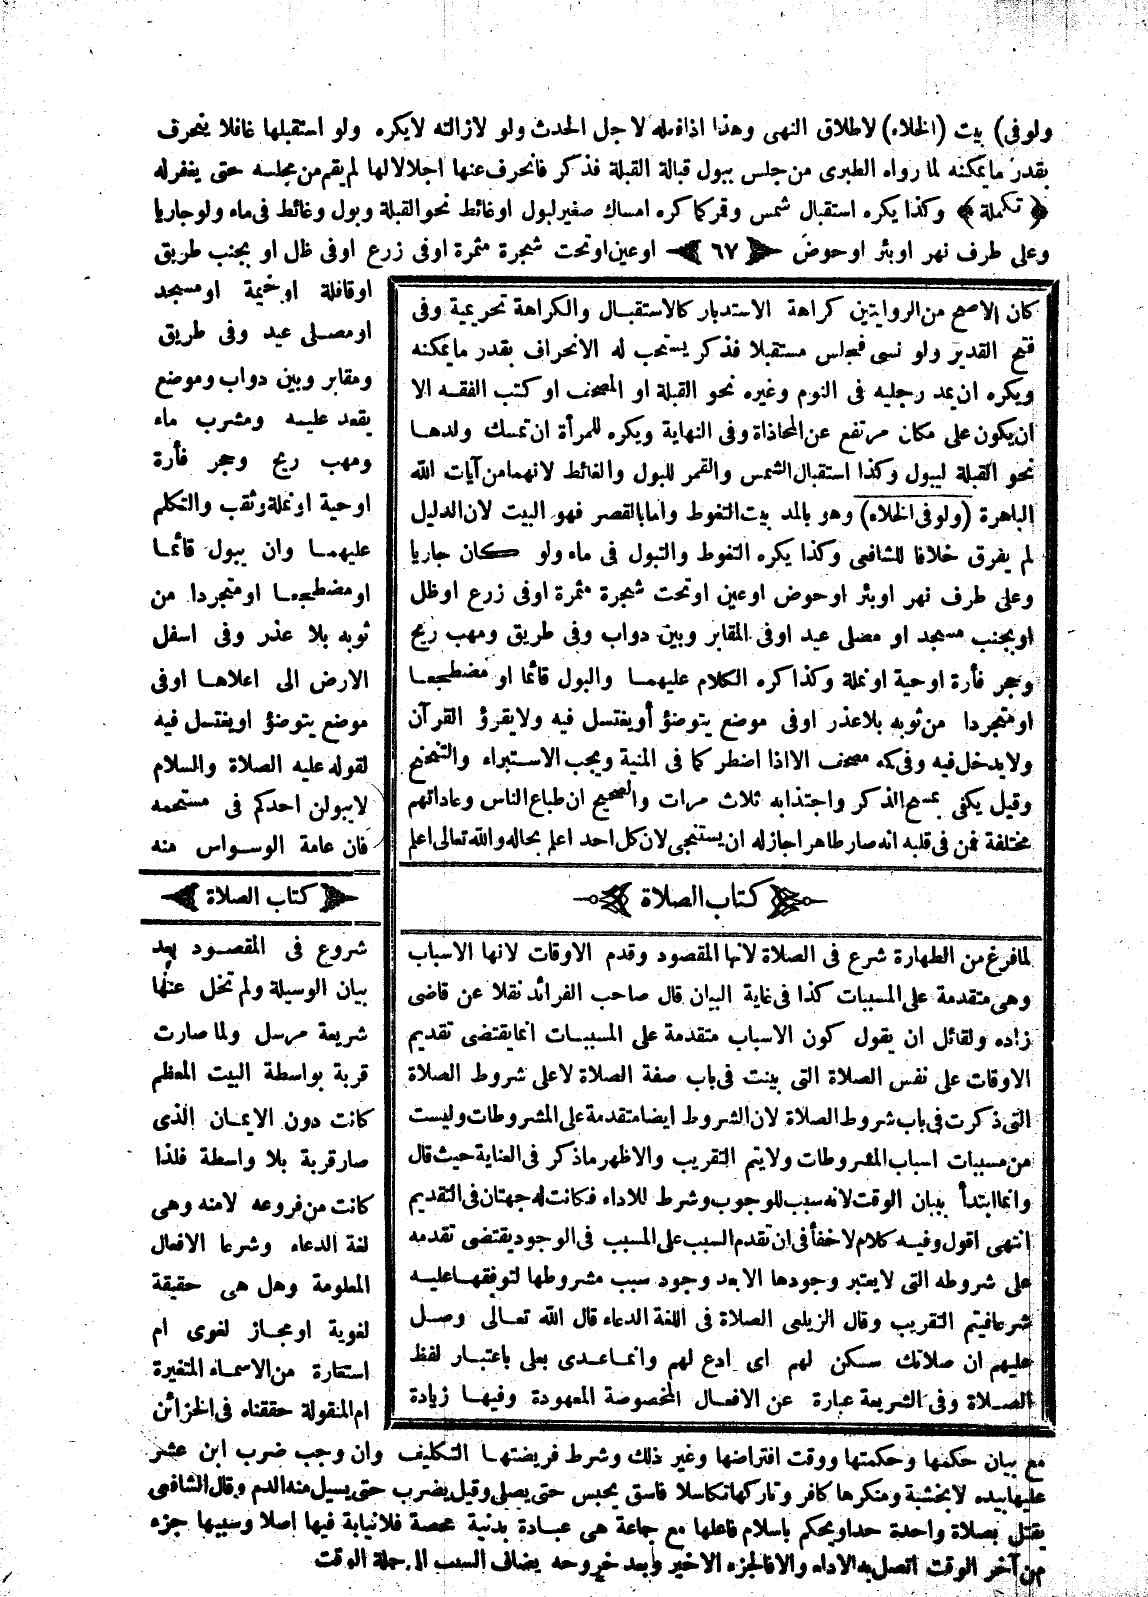 ولو فى) بيت (الخلاء) لاطلاق النهى وهذا اذا فعله لاجل الحدث ولو لازالته لايكره ولو استقبلها غافلا ينحرف
بقدر مايمكنه لما رواه الطبرى من جلس يبول قبالة القبلة فذكر فانحرف عنها اجلالا لها لم يقم من مجلسه حتى يغفر له
﴿ تكملة ﴾ وكذا يكره استقبال شمس وقمر كما كره امساك صغير لبول او غائط نحو القبلة وبول وغائط فى ماء ولو جاريا
وعلى طرف نهر او بئر او حوض ٦٧ او عين او تحت شجرة مثمرة او فى زرع او فى ظل او بجنب طريق
او قافلة او خيمة او مسجد
او مصلى عيد وفى طريق
ومقابر وبين دواب وموضع
يقعد عليه ومشرب ماء
ومهب ريح وجحر فأرة
او حية او نملة وثقب والتكلم
عليهما وان يبول قائما
او مضطجعا او متجردا من
ثوبه بلا عذر وفى اسفل
الارض الى اعلاها او فى
موضع يتوضؤ او يغتسل فيه
لقوله عليه الصلاة والسلام
لايبولن احدكم فى مستحمه
فان عامة الوسواس منه
كتاب الصلاة
شروع فى المقصود بعد
بيان الوسيلة ولم تخل عنها
شريعة مرسل ولما صارت
قربة بواسطة البيت المعظم
كانت دون الايمان الذى
صار قربة بلا واسطة فلذا
كانت من فروعه لامنه وهى
لغة الدعاء وشرعا الافعال
المعلومة وهل هى حقيقة
لغوية او مجاز لغوى ام
استعارة من الاسماء المتغيرة
ام المنقولة حققناه فى الخزائن
كان الاصح من الروايتين كراهة الاستدبار كالاستقبال والكراهة تحريمية وفى
فتح القدير ولو نسى فجلس مستقبلا فذكر يستحب له الانحراف بقدر مايمكنه
ويكره ان يمد رجليه فى النوم وغيره نحو القبلة او المصحف او كتب الفقه الا
ان يكون على مكان مرتفع عن المحاذاة وفى النهاية ويكره للمرأة ان تمسك ولدها
نحو القبلة ليبول وكذا استقبال الشمس والقمر للبول والغائط لانهما من آيات الله
الباهرة (ولو فى الخلاء) وهو بالمد بيت التغوط واما بالقصر فهو البيت لان الدليل
لم يفرق خلافا للشافعى وكذا يكره التغوط والتبول فى ماء ولو كان جاريا
وعلى طرف نهر او بئر او حوض او عين او تحت شجرة مثمرة او فى زرع او ظل
او بجنب مسجد او مصلى عيد او فى المقابر وبين دواب وفى طريق ومهب ريح
وجحر فأرة او حية او نملة وكذا كره الكلام عليهما والبول قائما او مضطجعا
او متجردا من ثوبه بلا عذر او فى موضع يتوضؤ أو يغتسل فيه ولا يقرؤ القرآن
ولا يدخل فيه وفى كمه مصحف الا اذا اضطر كما فى المنية ويجب الاستبراء والتنحنح
وقيل يكفى بمسح الذكر واجتذابه ثلاث مرات والصحيح ان طباع الناس وعاداتهم
مختلفة فمن فى قلبه انه صار طاهرا جاز له ان يستنجى لان كل احد اعلم بحاله والله تعالى اعلم
كتاب الصلاة
لما فرغ من الطهارة شرع فى الصلاة لانها المقصود وقدم الاوقات لانها الاسباب
وهى متقدمة على المسببات كذا فى غاية البيان قال صاحب الفرائد نقلا عن قاضى
زاده ولقائل ان يقول كون الاسباب متقدمة على المسببات انما يقتضى تقديم
الاوقات على نفس الصلاة التى بينت فى باب صفة الصلاة لا على شروط الصلاة
التى ذكرت فى باب شروط الصلاة لان الشروط ايضا متقدمة على المشروطات وليست
من مسببات اسباب المشروطات ولا يتم التقريب والاظهر ماذكر فى العناية حيث قال
وانما ابتدأ ببيان الوقت لانه سبب للوجوب وشرط للاداء فكانت له جهتان فى التقديم
انتهى اقول وفيه كلام لاخفأ فى ان تقدم السبب على المسبب فى الوجود يقتضى تقدمه
على شروطه التى لايعتبر وجودها الا بعد وجود سبب مشروطها لتوقفها عليه
شرعا فيتم التقريب وقال الزيلعى الصلاة فى اللغة الدعاء قال الله تعالى وصل
عليهم ان صلاتك سكن لهم اى ادع لهم وانما عدى بعلى باعتبار لفظ
الصلاة وفى الشريعة عبارة عن الافعال المخصوصة المعهودة وفيها زيادة
مع بيان حكمها وحكمتها ووقت افتراضها وغير ذلك وشرط فريضتها التكليف وان وجب ضرب ابن عشر
عليها بيده لا بخشبة ومنكرها كافر وتاركها تكاسلا فاسق يحبس حتى يصلى وقيل يضرب حتى يسيل منه الدم وقال الشافعى
يقتل بصلاة واحدة حدا ويحكم باسلام فاعلها مع جماعة هى عبادة بدنية محصة فلا نيابة فيها اصلا وسببها جزء
من آخر الوقت اتصل به الاداء والا فالجزء الاخير وبعد خروجه يضاف السبب الى جملة الوقت